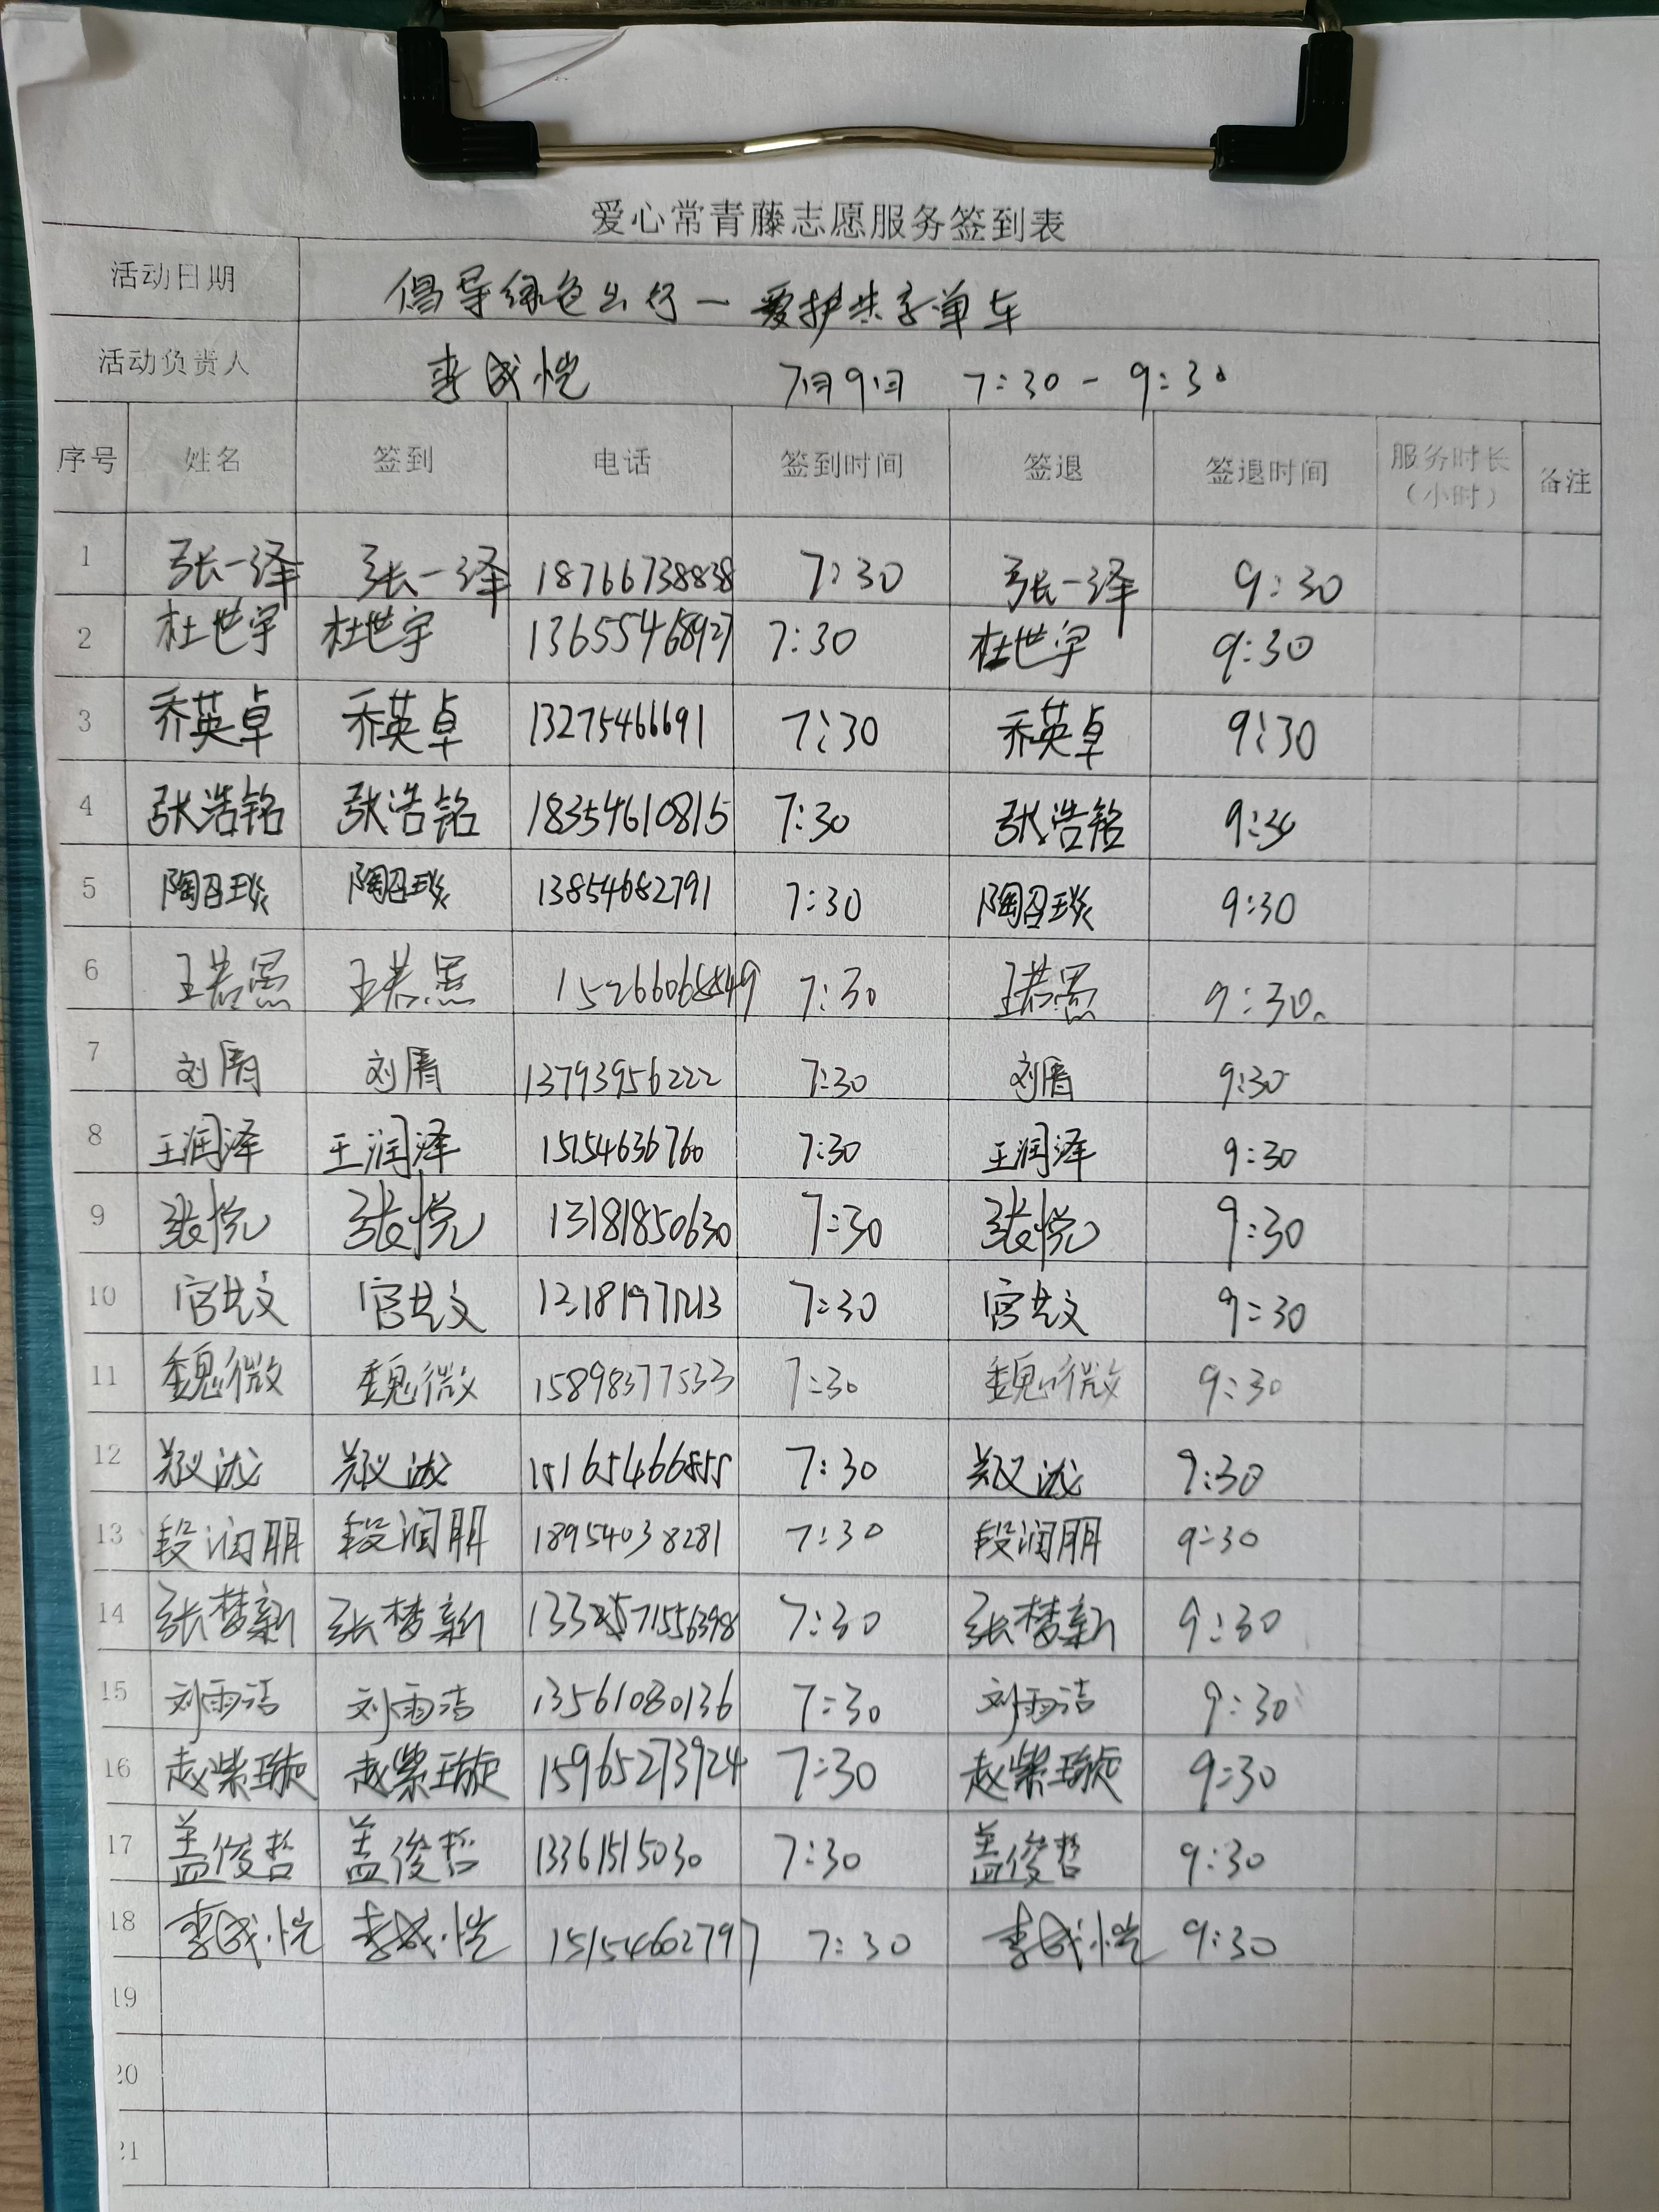 爱心常青藤志愿服务签到表
活动日期 倡导绿色出行一爱护共享单车
活动负责人 李成恺 7月9日 7:30-9:30
序号 姓名 签到 电话 签到时间 签退 签退时间 服务时长（小时） 备注
1 张一泽 张一泽 18766738838 7:30 张一泽 9:30
2 杜世宇 杜世宇 13655468927 7:30 杜世宇 9:30
3 乔英卓 乔英卓 13275466691 7:30 乔英卓 9:30
4 张浩铭 张浩铭 18354610815 7:30 张浩铭 9:30
5 陶召琰 陶召琰 13854682791 7:30 陶召琰 9:30
6 王若愚 王若愚 7:30 王若愚 9:30
7 刘 刘 13793956222 7:30 刘 9:30
8 王润泽 王润泽 15154636760 7:30 王润泽 9:30
9 张悦 张悦 13181850630 7:30 张悦 9:30
10 宫共文 宫共文 7:30 宫共文 9:30
11 魏微 魏微 15898377533 7:30 魏微 9:30
12 郑泷 郑泷 15165466855 7:30 郑泷 9:30
13 段润朋 段润朋 18954038281 7:30 段润朋 9:30
14 张梦新 张梦新 7:30 张梦新 9:30
15 刘雨洁 刘雨洁 13561080136 7:30 刘雨洁 9:30
16 赵紫璇 赵紫璇 15965273924 7:30 赵紫璇 9:30
17 盖俊哲 盖俊哲 13361515030 7:30 盖俊哲 9:30
18 李成恺 李成恺 15154602797 7:30 李成恺 9:30
19
20
21